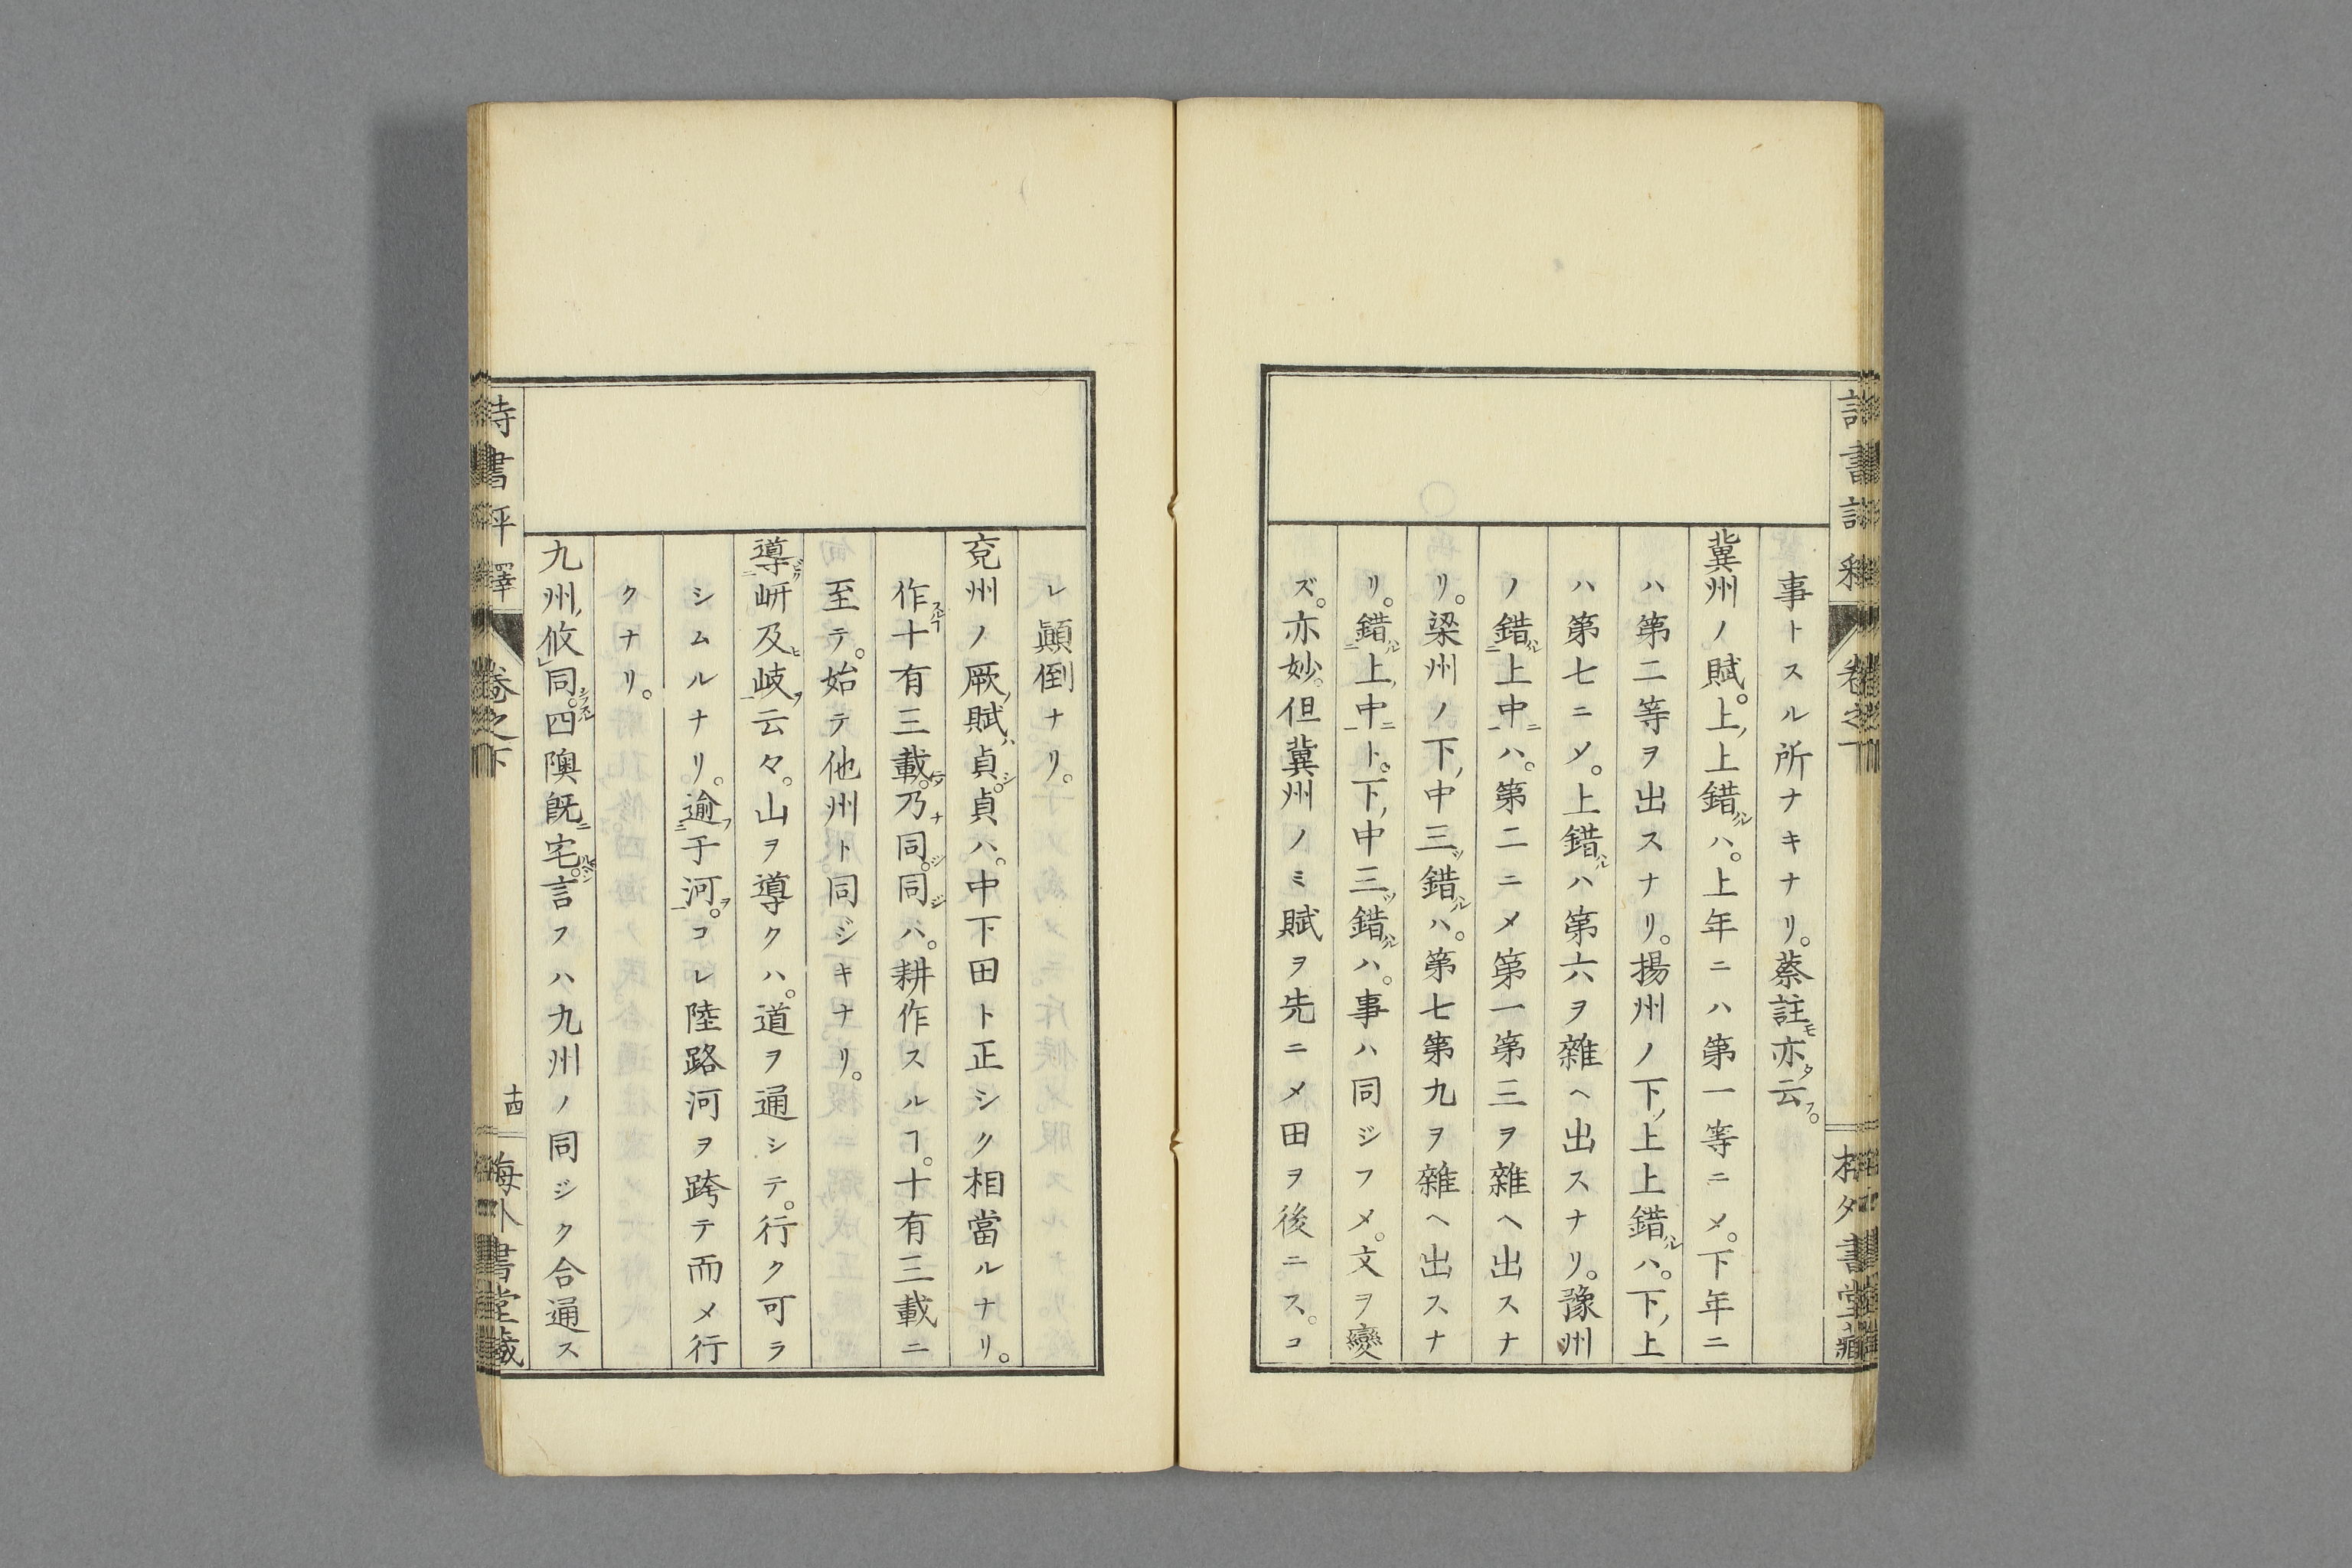 事トスル所ナキナリ。蔡註モ亦タ云フ。
冀州ノ賦。上,上錯ルハ。上年ニハ第一等ニメ。下年ニ
ハ第二等ヲ出スナリ。揚州ノ下,上上錯ルハ。下,上
ハ第七ニメ。上錯ルハ第六ヲ雜ヘ出スナリ。豫州
ノ錯ルハ二上中ニ一ハ。第二ニメ第一第三ヲ雜ヘ出スナ
リ。梁州ノ下,中三ツ錯ルハ。第七第九ヲ雜ヘ出スナ
リ。錯ル二上,中ニ一ト。下,中三ツ錯ルハ。事ハ同ジフメ。文ヲ變
ズ。亦妙。但冀州ノミ賦ヲ先ニメ田ヲ後ニス。コ
レ顚倒ナリ。
兗州ノ厥ノ賦ハ貞シ。貞ハ。中下田ト正シク相當ルナリ。
作スルヿ十有三載ニシテ。乃ナ同シ。同ジハ。耕作スルヿ。十有三載ニ
至テ。始テ他州ト同ジキナリ。
導ビク二岍及ヒ岐ヲ一云々。山ヲ導クハ。道ヲ通シテ。行ク可ラ
シムルナリ。逾フ二于河ヲ一。コレ陸路河ヲ跨テ而メ行
クナリ。
九州,攸同シフスル。四隩既ニ宅ルベシ。言フハ九州ノ同ジク合通ス
詩書評釋
卷之下
十四
海外書堂藏